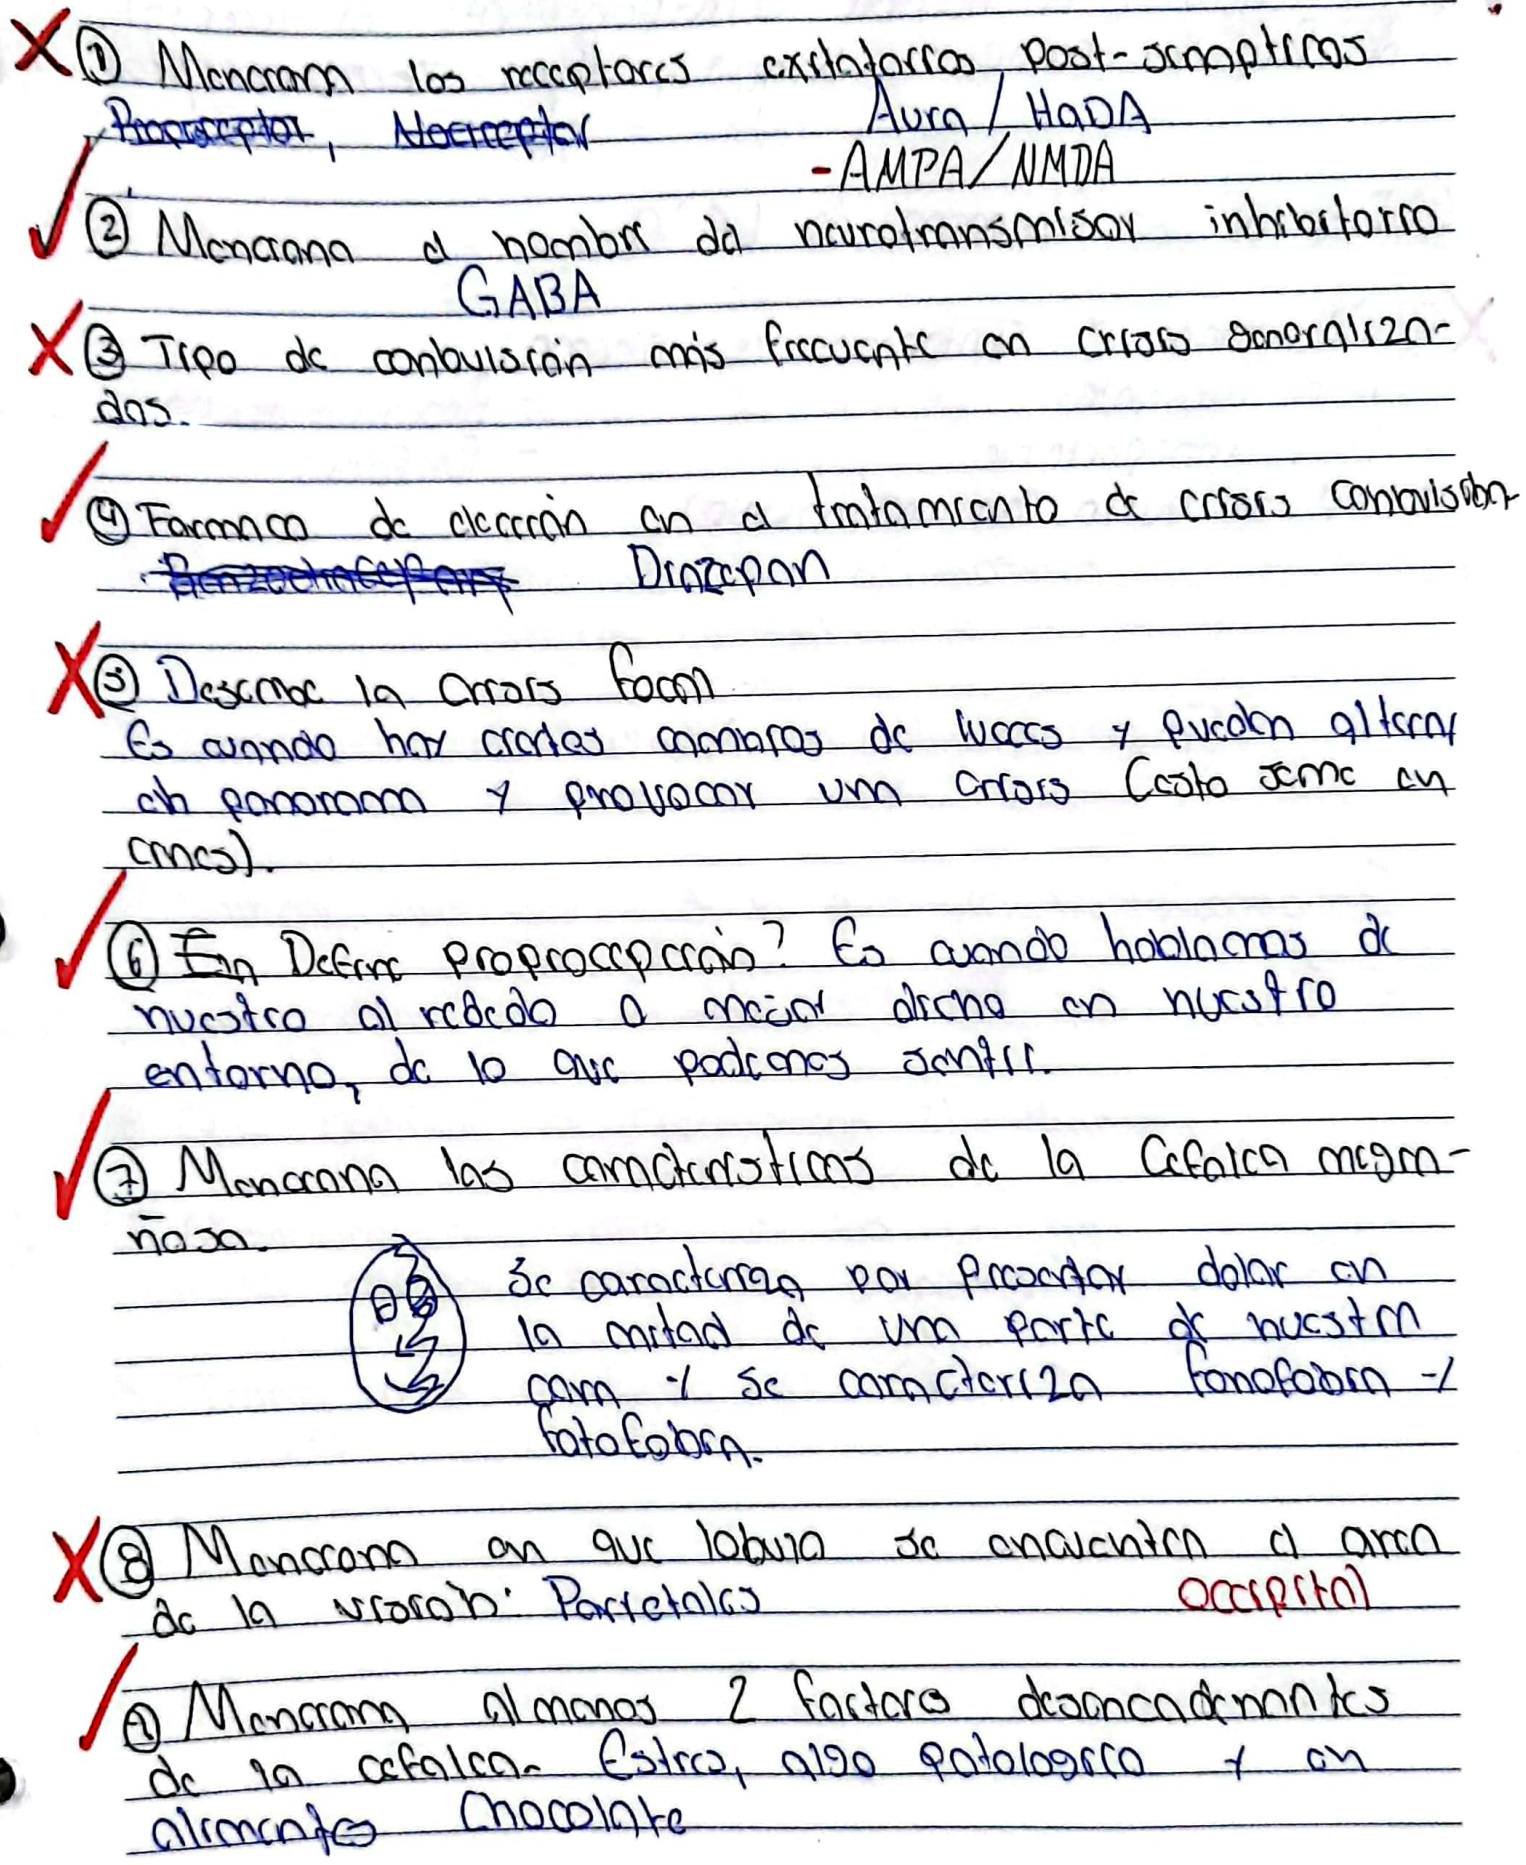 ① Menciona los receptores exitatorios post-sinapticos
Propioceptor, Nocirceptor Aura / HaDA
- AMPA/NMDA
② Menciona el nombre del neurotransmisor inhibitorio
GABA
③ Tipo de conbulsión más frecuente en crisis generaliza-
das.
④ Farmaco de elección en el tratamiento de crisis conbulsiba
Diazepan
⑤ Describe la crisis focal
Es cuando hay ciertos cambios de luces y pueden alterar
el panorama y provocar una crisis (esto seme en
cines).
⑥ En Define propiocepción? Es cuando hablamos de
nuestro al rededo o mejor dicho en nuestro
entorno, de lo que podemos sentir.
⑦ Menciona las caracteristicas de la Cefalea migra-
ñosa.
Se caracteriza por presentar dolor en
la mitad de una parte de nuestra
cara y se caracteriza fonofobia y
fotofobia.
⑧ Menciona en que lobulo se encuentra el area
de la visión: Parietales Occipital
⑨ Menciona almenos 2 factores desencadenantes
de la cefalea. Estres, algo patologico y en
alimentos Chocolate